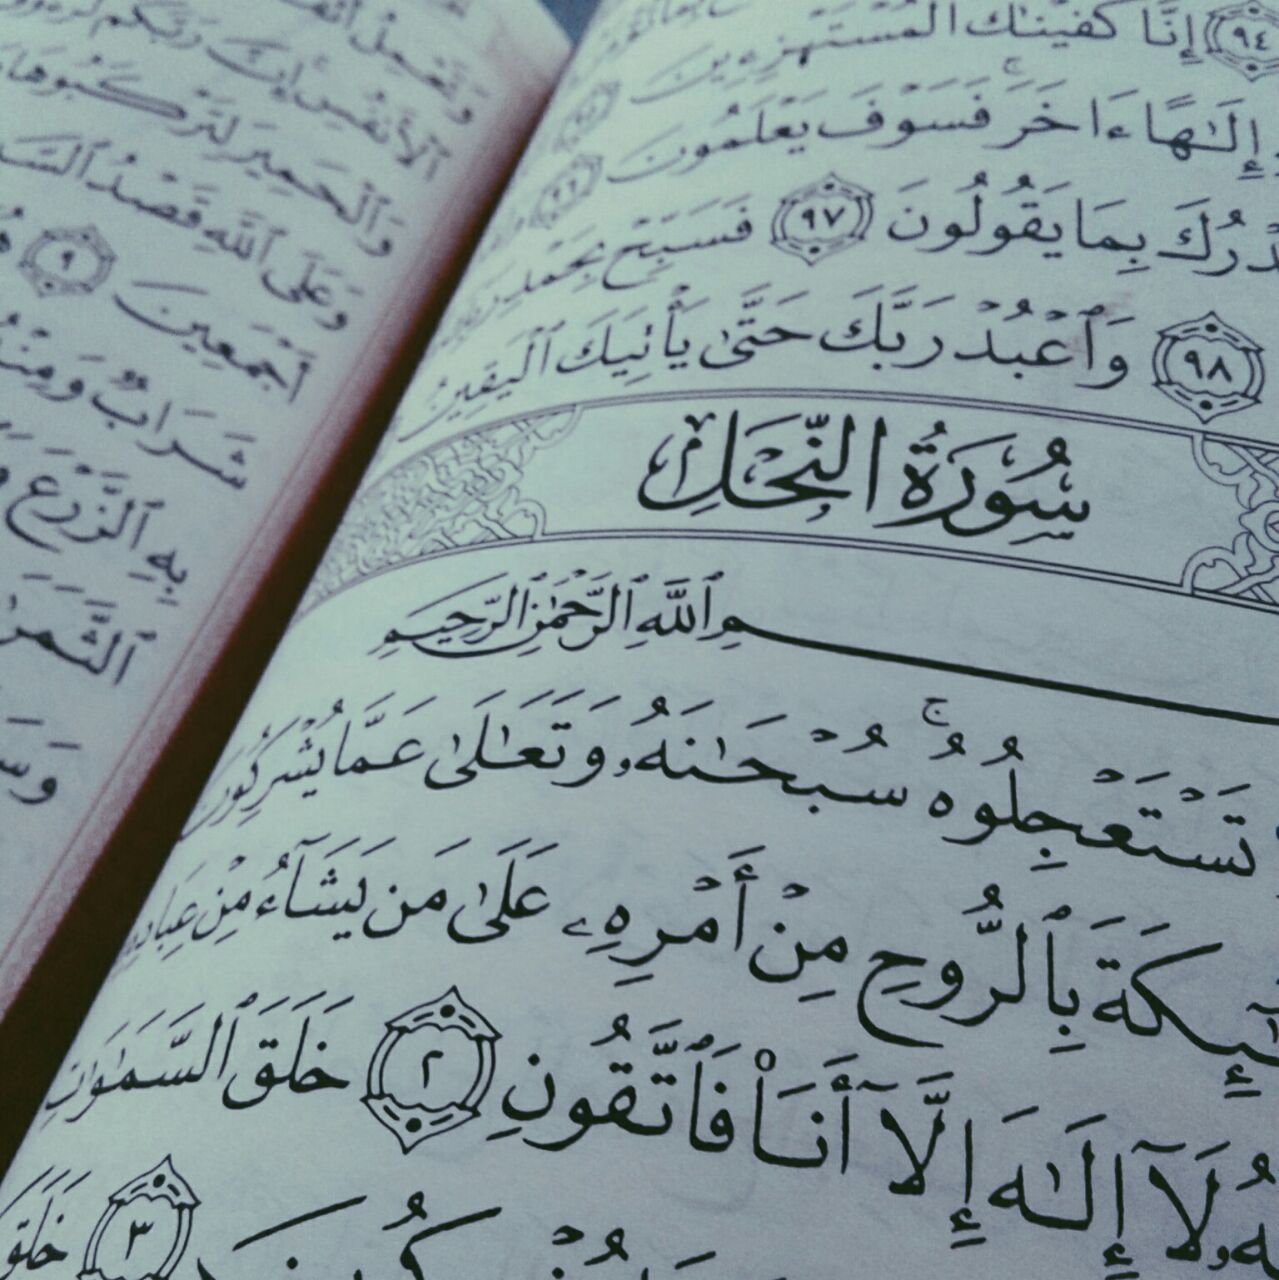 ٩٤ إِنَّا كَفَيْنَٰكَ ٱلْمُسْتَهْزِءِينَ
إِلَٰهًا ءَاخَرَ ۚ فَسَوْفَ يَعْلَمُونَ ٩٦
بِمَا يَقُولُونَ ٩٧ فَسَبِّحْ بِحَمْدِ
٩٨ وَٱعْبُدْ رَبَّكَ حَتَّىٰ يَأْتِيَكَ ٱلْيَقِينُ
سُورَةُ النَّحْلِ
ٱللَّهِ ٱلرَّحْمَٰنِ ٱلرَّحِيمِ
تَسْتَعْجِلُوهُ ۚ سُبْحَٰنَهُۥ وَتَعَٰلَىٰ عَمَّا يُشْرِكُونَ
بِٱلرُّوحِ مِنْ أَمْرِهِۦ عَلَىٰ مَن يَشَآءُ مِنْ عِبَادِهِ
لَآ إِلَٰهَ إِلَّآ أَنَا۠ فَٱتَّقُونِ ٢ خَلَقَ ٱلسَّمَٰوَٰتِ
٣ خَلَقَ
ٱلْأَنفُسِ إِنَّ رَبَّكُمْ
وَٱلْحَمِيرَ لِتَرْكَبُوهَا
وَعَلَى ٱللَّهِ قَصْدُ
أَجْمَعِينَ ٩
شَرَابٌ وَمِنْهُ
بِهِ ٱلزَّرْعَ